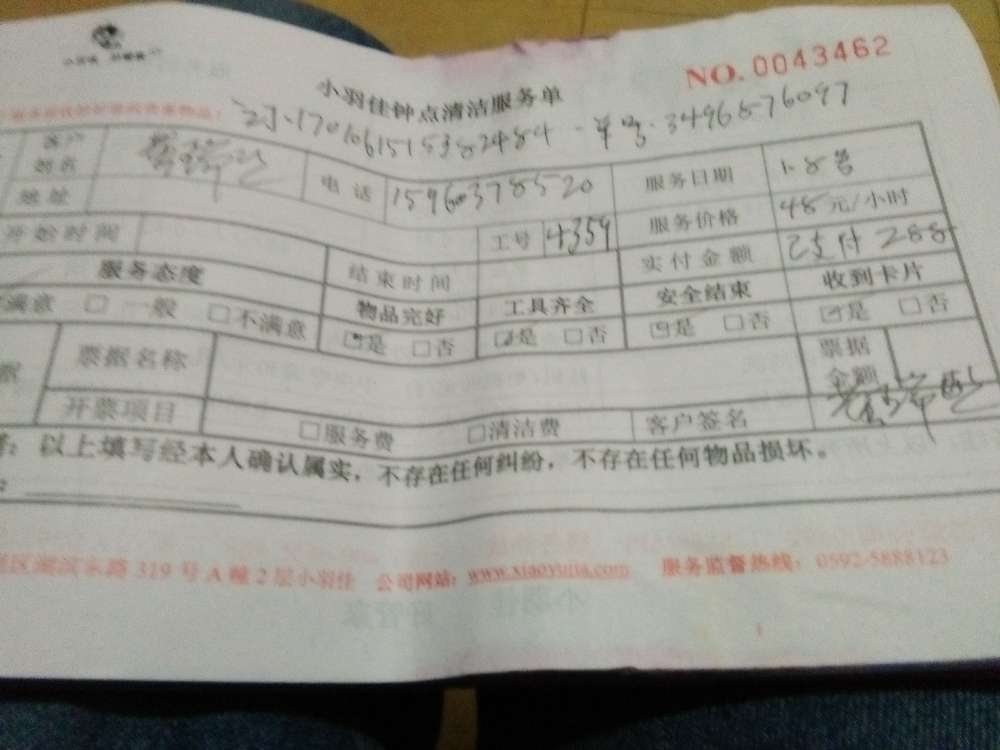 NO.0043462
小羽佳钟点清洁服务单
订.1701061515382484 - 单号.34968576097
客户姓名 电话 15960378520 服务日期 1.8号
地址 工号 4359 服务价格 48元/小时
开始时间 结束时间 实付金额 已支付 288
服务态度 物品完好 工具齐全 安全结束 收到卡片
满意 □一般 □不满意 ☑是 □否 ☑是 □否 ☑是 □否 ☑是 □否
票据名称 票据金额
开票项目 □服务费 □清洁费 客户签名
以上填写经本人确认属实，不存在任何纠纷，不存在任何物品损坏。
区湖滨东路319号A幢2层小羽佳 公司网站：www.xiaoyujia.com 服务监督热线：0592-5888123